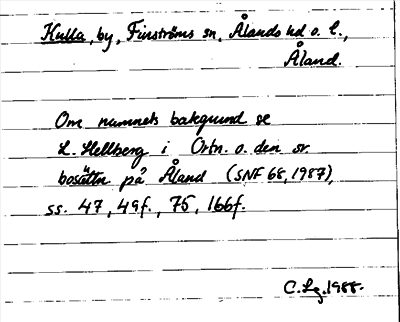 Kulla, by, Finströms sn, Ålands hd o. l.,
Åland.
Om namnets bakgrund se
L. Hellberg i Ortn. o. den sv.
bosättn på Åland (SNF 68, 1987),
ss. 47, 49f., 75, 166f.
C. Lg. 1988.